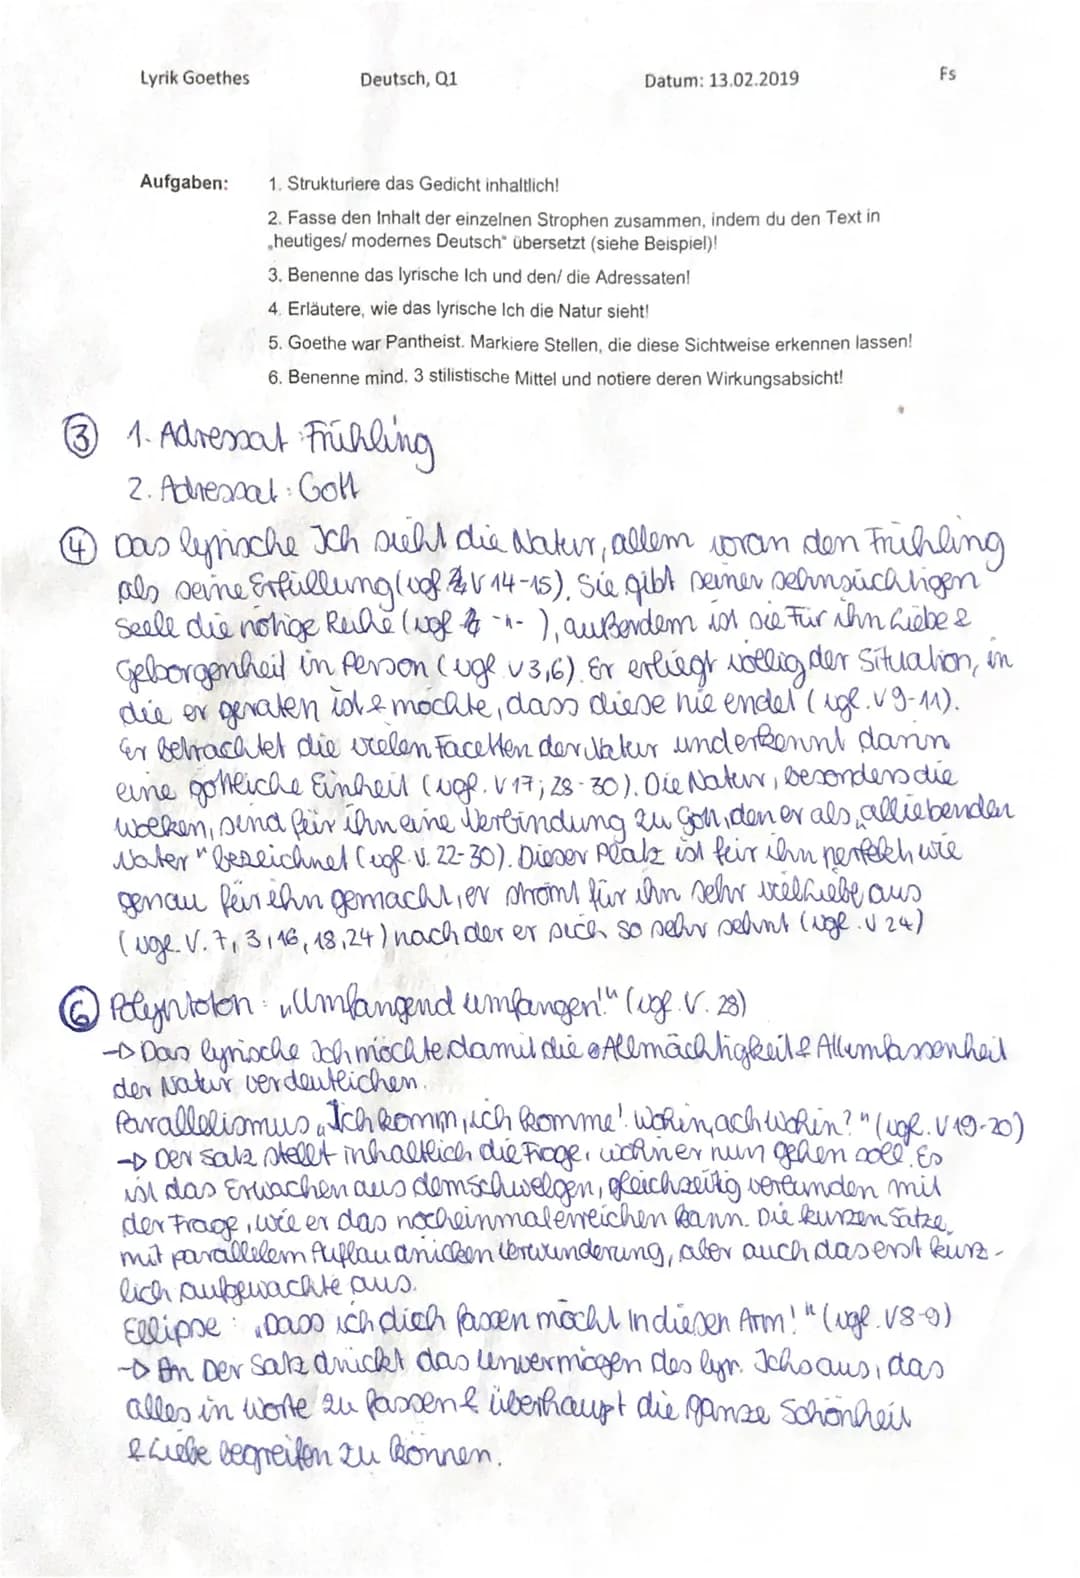 Lyrik Goethes Deutsch, Q1 Datum: 13.02.2019 Fs
Aufgaben: 1. Strukturiere das Gedicht inhaltlich!
2. Fasse den Inhalt der einzelnen Strophen zusammen, indem du den Text in
„heutiges/ modernes Deutsch" übersetzt (siehe Beispiel)!
3. Benenne das lyrische Ich und den/ die Adressaten!
4. Erläutere, wie das lyrische Ich die Natur sieht!
5. Goethe war Pantheist. Markiere Stellen, die diese Sichtweise erkennen lassen!
6. Benenne mind. 3 stilistische Mittel und notiere deren Wirkungsabsicht!
③ 1. Adressat: Frühling
2. Adressat: Gott
④ Das lyrische Ich sieht die Natur, allem voran den Frühling
als seine Erfüllung (vgl. V 14-15). Sie gibt seiner sehnsüchtigen
Seele die nötige Ruhe (vgl. -"-), außerdem ist sie für ihn Liebe &
Geborgenheit in Person (vgl. V3,6). Er erliegt völlig der Situation, in
die er geraten ist & möchte, dass diese nie endet (vgl. V 9-11).
Er betrachtet die vielen Facetten der Natur und erkennt darin
eine göttliche Einheit (vgl. V 17; 28-30). Die Natur, besonders die
Wolken, sind für ihn eine Verbindung zu Gott, den er als „alliebenden
Vater" bezeichnet (vgl. V. 22-30). Dieser Platz ist für ihn perfekt, wie
genau für ihn gemacht, er strömt für ihn sehr viel Liebe aus
(vgl. V. 7, 3, 16, 18, 24) nach der er sich so sehr sehnt (vgl. V 24)
⑥ Polyptoton: „Umfangend umfangen!" (vgl. V. 28)
→ Das lyrische Ich möchte damit die Allmächtigkeit & Allumfassenheit
der Natur verdeutlichen.
Parallelismus „Ich komm, ich komme! Wohin, ach wohin?" (vgl. V 19-20)
→ Der Satz stellt inhaltlich die Frage, wohin er nun gehen soll. Es
ist das Erwachen aus dem Schwelgen, gleichzeitig verbunden mit
der Frage, wie er das noch einmal erreichen kann. Die kurzen Sätze
mit parallelem Aufbau drücken Verwunderung, aber auch das erst kürz-
lich aufgewachte aus.
Ellipse: „Dass ich dich fassen möcht In diesen Arm!" (vgl. V8-9)
→ Der Satz drückt das Unvermögen des lyr. Ichs aus, das
alles in Worte zu fassen & überhaupt die ganze Schönheit
& Liebe begreifen zu können.